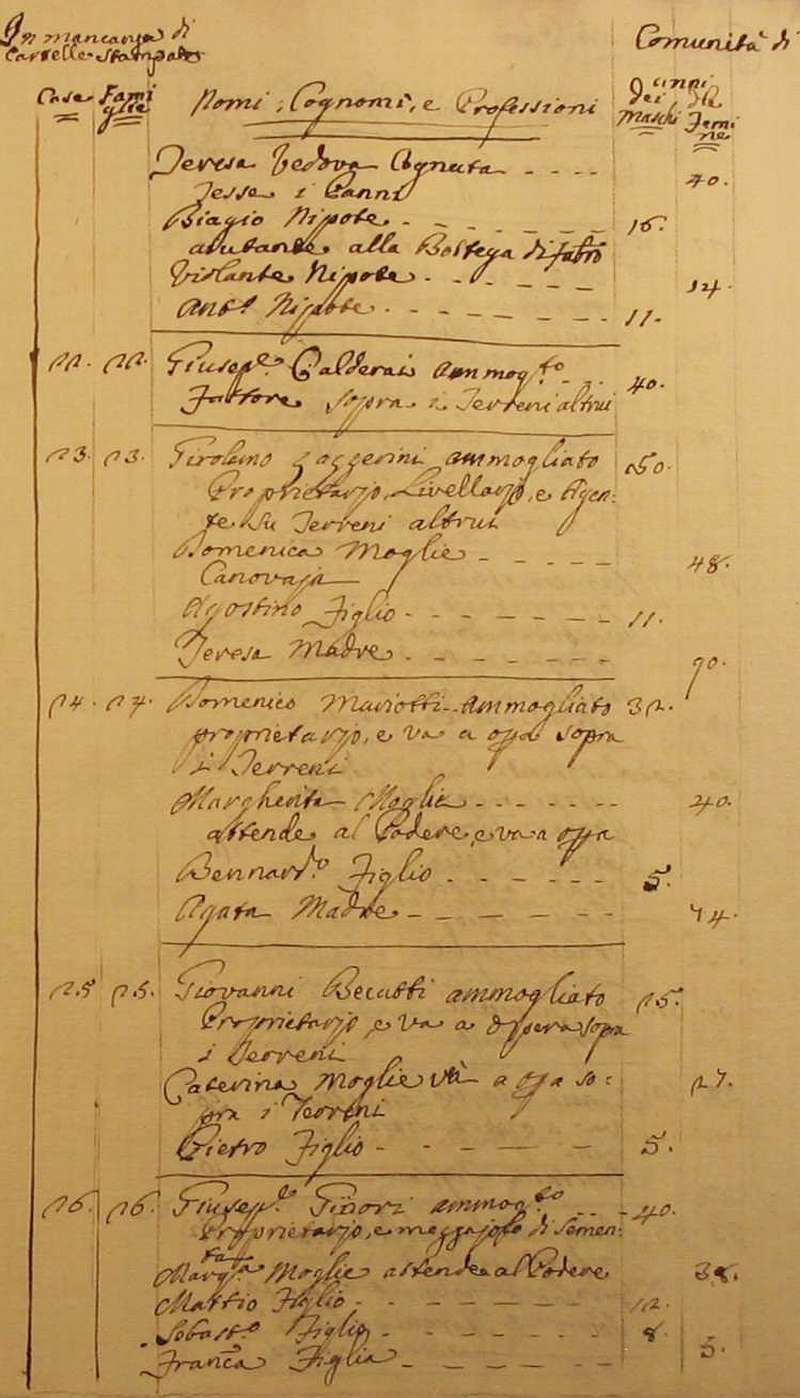 In mancanza di
Cartelle Stampate
Comunità di
Case Fami
glie
Nomi, Cognomi, e Professioni
Anni
dei di
Maschi Femi
ne
Teresa Vedova Agnata - - - - 40.
Tesse i Panni
Biagio Nipote - - - - - - 16.
aiutante alla Bottega di fabbro
Violante Nipote - - - - - - 14.
Ant.o Nipote - - - - - - 11.
22. 22. Giusep.e Calderai ammog.to - - 40.
Fattore sopra i Terreni altrui
23. 23. Girolamo Zaccerini ammogliato 50.
Proprietario, Livellario, e Agen:
te su Terreni altrui
Domenica Moglie - - - - 48.
Canovaja
Agostino Figlio - - - - - - 11.
Teresa Madre - - - - - - 70.
24. 24. Domenico Mariotti - ammogliato 32.
proprietario, e va a opa sopra
i Terreni
Margherita Moglie - - - - - - 40.
attende al Podere, e va a opa
Bernard.o Figlio - - - - - 5.
Agata Madre - - - - - - 74.
25 25. Giovanni Becatti ammogliato 25.
Proprietario, e va a Opera sopra
i Terreni
Caterina Moglie và a opa so:
pra i Terreni 27.
Pietro Figlio - - - - - 5.
26. 26. Giusep.e Ginori ammog.to - - - 40.
Proprietario, e mezzajolo di Semen:
ta
Marg.ta Moglie attende al Podere 38.
Mattio Figlio - - - - - - 12.
Sebast.o Figlio - - - - - - 8.
Franca Figlia - - - - - - 5.